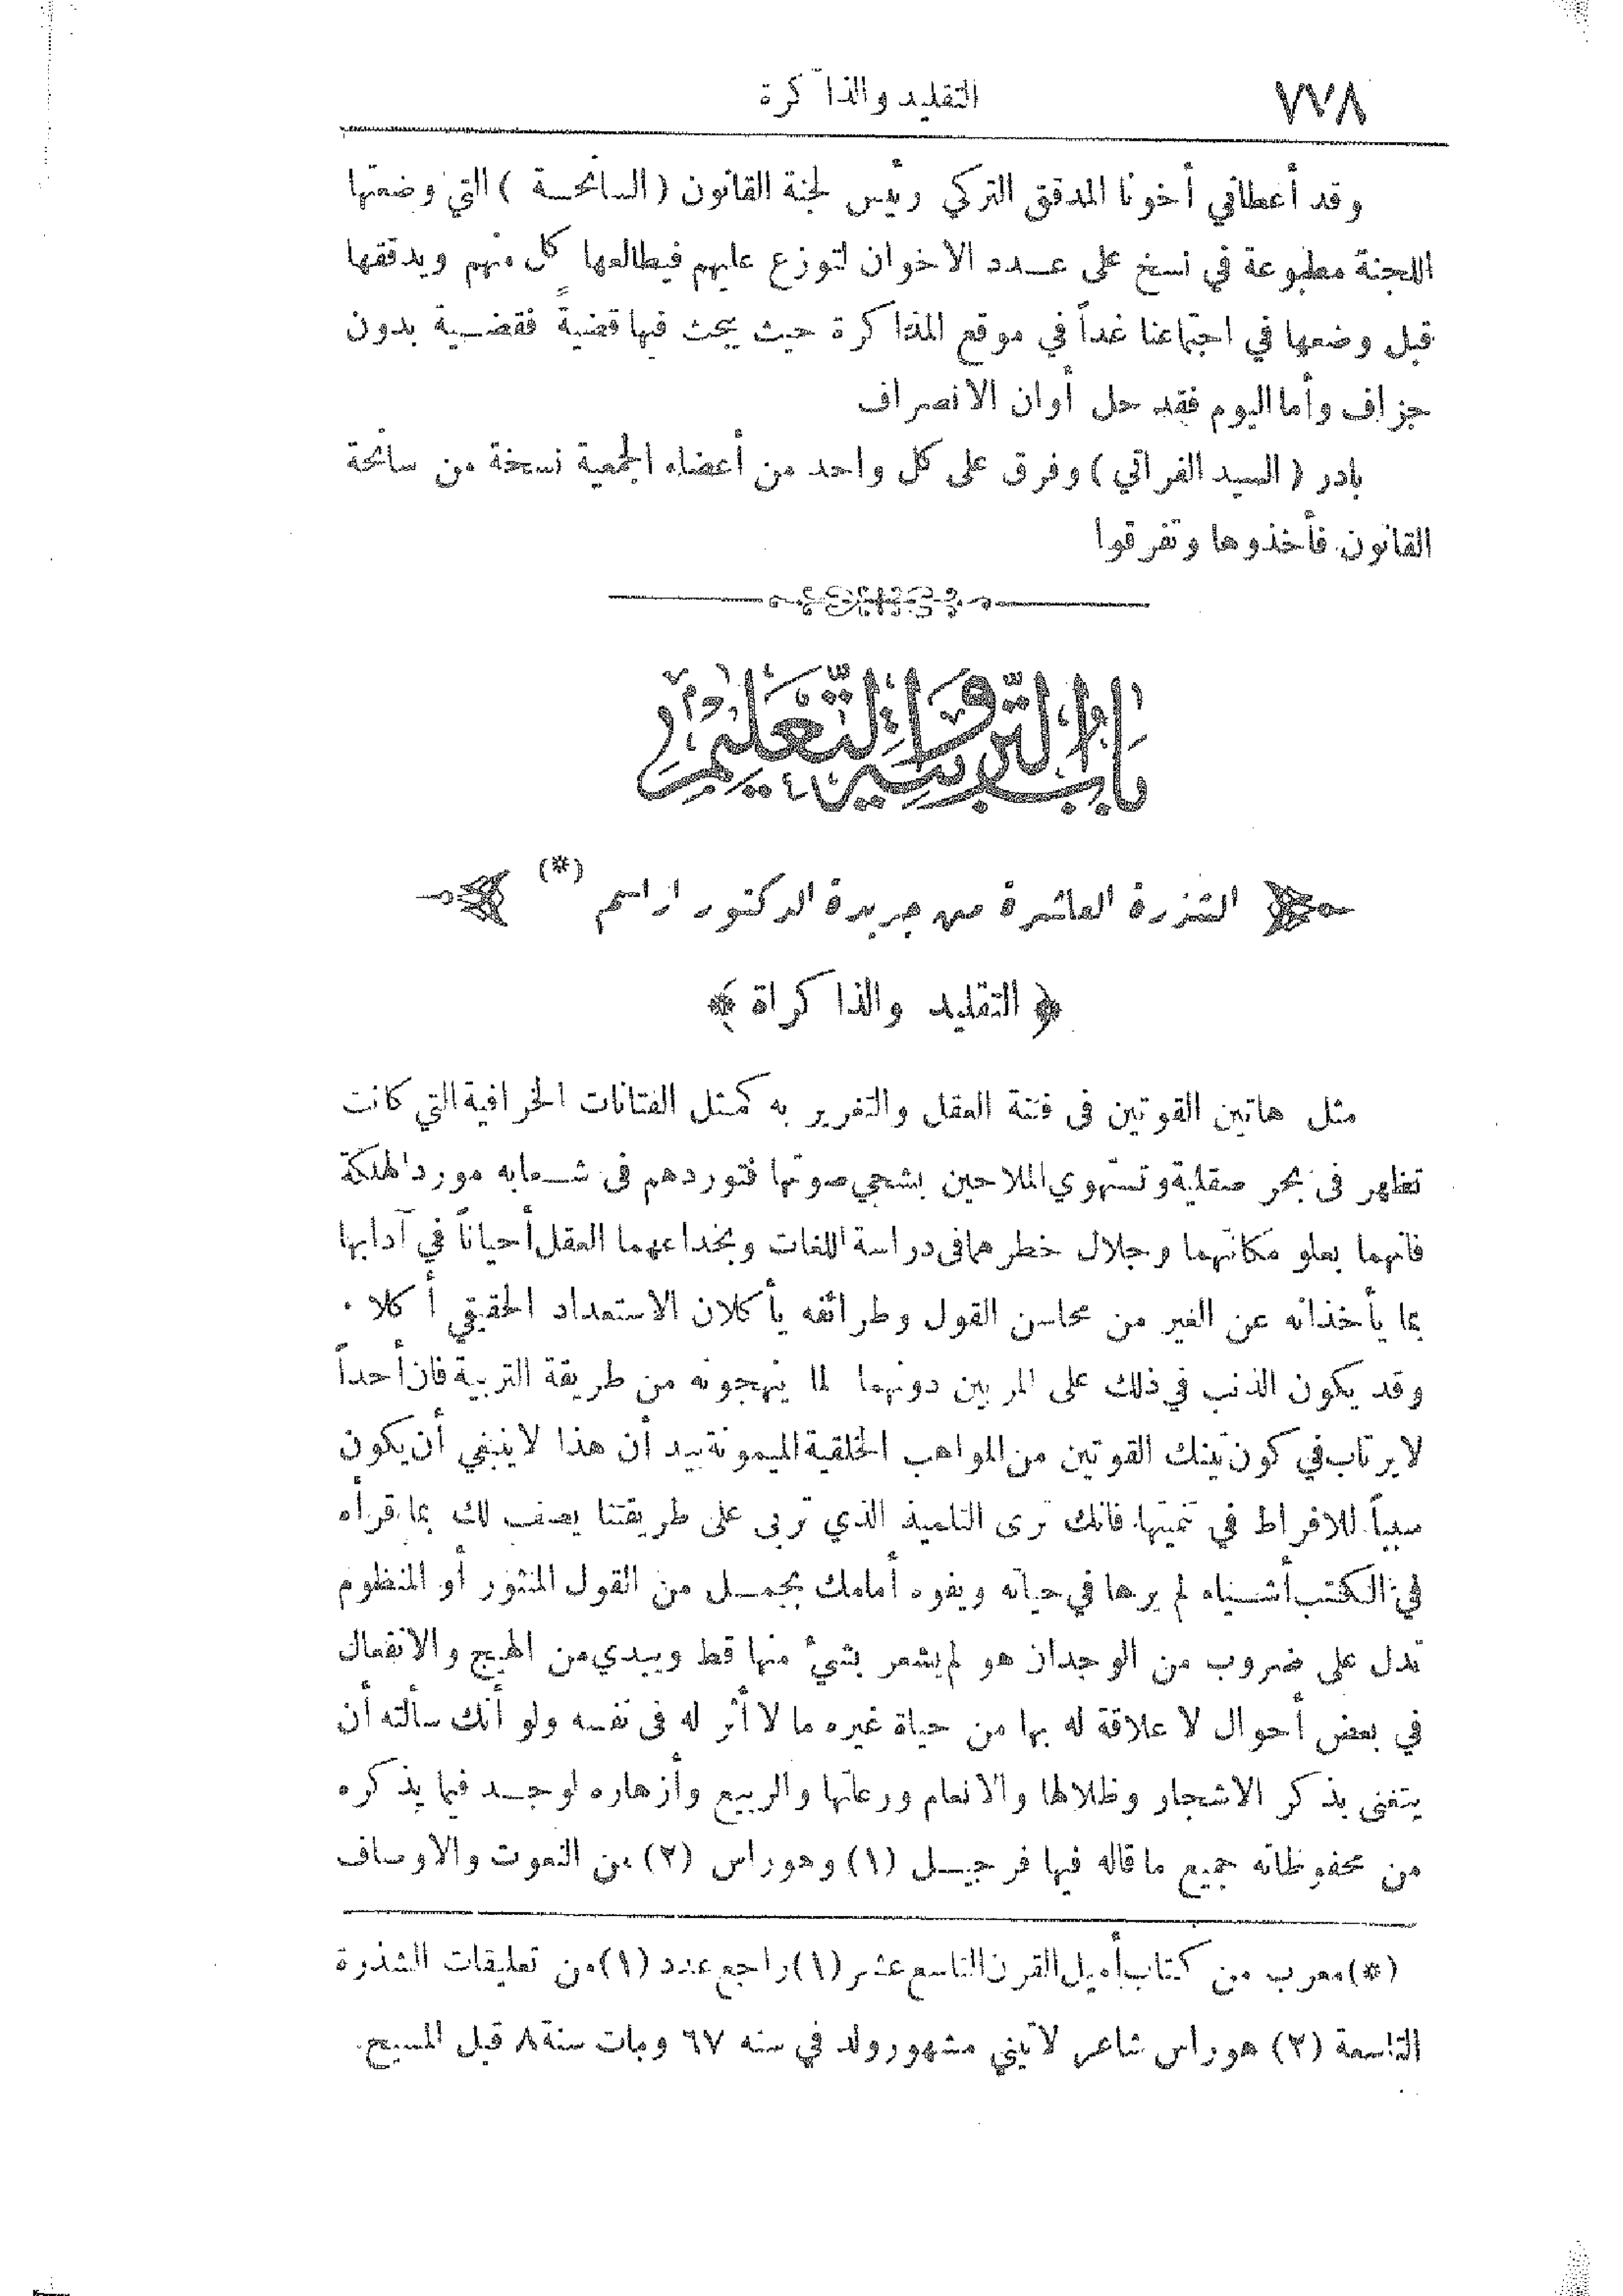 ٧٧٨
التقليد والذاكرة
وقد أعطاني أخونا المدقق التركي رئيس لجنة القانون ( السانحة ) التي وضعتها
اللجنة مطبوعة في نسخ على عدد الاخوان لتوزع عليهم فيطالعها كل منهم ويدققها
قبل وضعها في اجتماعنا غداً في موقع المذاكرة حيث يبحث فيها قضيةً فقضية بدون
جزاف وأما اليوم فقد حل أوان الانصراف
بادر ( السيد الفراتي ) وفرق على كل واحد من أعضاء الجمعية نسخة من سانحة
القانون فأخذوها وتفرقوا
باب التربية والتعليم
الشذرة العاشرة من جريدة الدكتور اراسم (*)
﴿ التقليد والذاكراة ﴾
مثل هاتين القوتين فى فتنة العقل والتغرير به كمثل الفتانات الخرافية التي كانت
تظهر فى بحر صقلية وتستهوي الملاحين بشجي صوتها فتوردهم فى شعابه مورد الهلكة
فانهما بعلو مكانتهما وجلال خطرهما فى دراسة اللغات وبخداعهما العقل أحياناً في آدابها
بما يأخذانه عن الغير من محاسن القول وطرائفه يأكلان الاستعداد الحقيقي أكلا ٠
وقد يكون الذنب في ذلك على المربين دونهما لما ينهجونه من طريقة التربية فان أحداً
لا يرتاب في كون تينك القوتين من المواهب الخلقية الميمونة بيد أن هذا لا ينبغي أن يكون
سبباً للافراط في تنميتها فانك ترى التلميذ الذي تربى على طريقتنا يصف لك بما قرأه
في الكتب أشياء لم يرها في حياته ويفوه أمامك بجمل من القول المنثور أو المنظوم
تدل على ضروب من الوجدان هو لم يشعر بشيء منها قط ويبدي من الهيج والانفعال
في بعض أحوال لا علاقة له بها من حياة غيره ما لا أثر له فى نفسه ولو أنك سألته أن
يتغنى بذكر الاشجار وظلالها والانعام ورعاتها والربيع وأزهاره لوجد فيما يذكره
من محفوظاته جميع ما قاله فيها فرجيل (١) وهوراس (٢) من النعوت والاوصاف
(*) معرب من كتاب أميل القرن التاسع عشر (١) راجع عدد (١) من تعليقات الشذرة
التاسعة (٢) هوراس شاعر لاتيني مشهور ولد في سنه ٦٧ ومات سنة ٨ قبل المسيح.